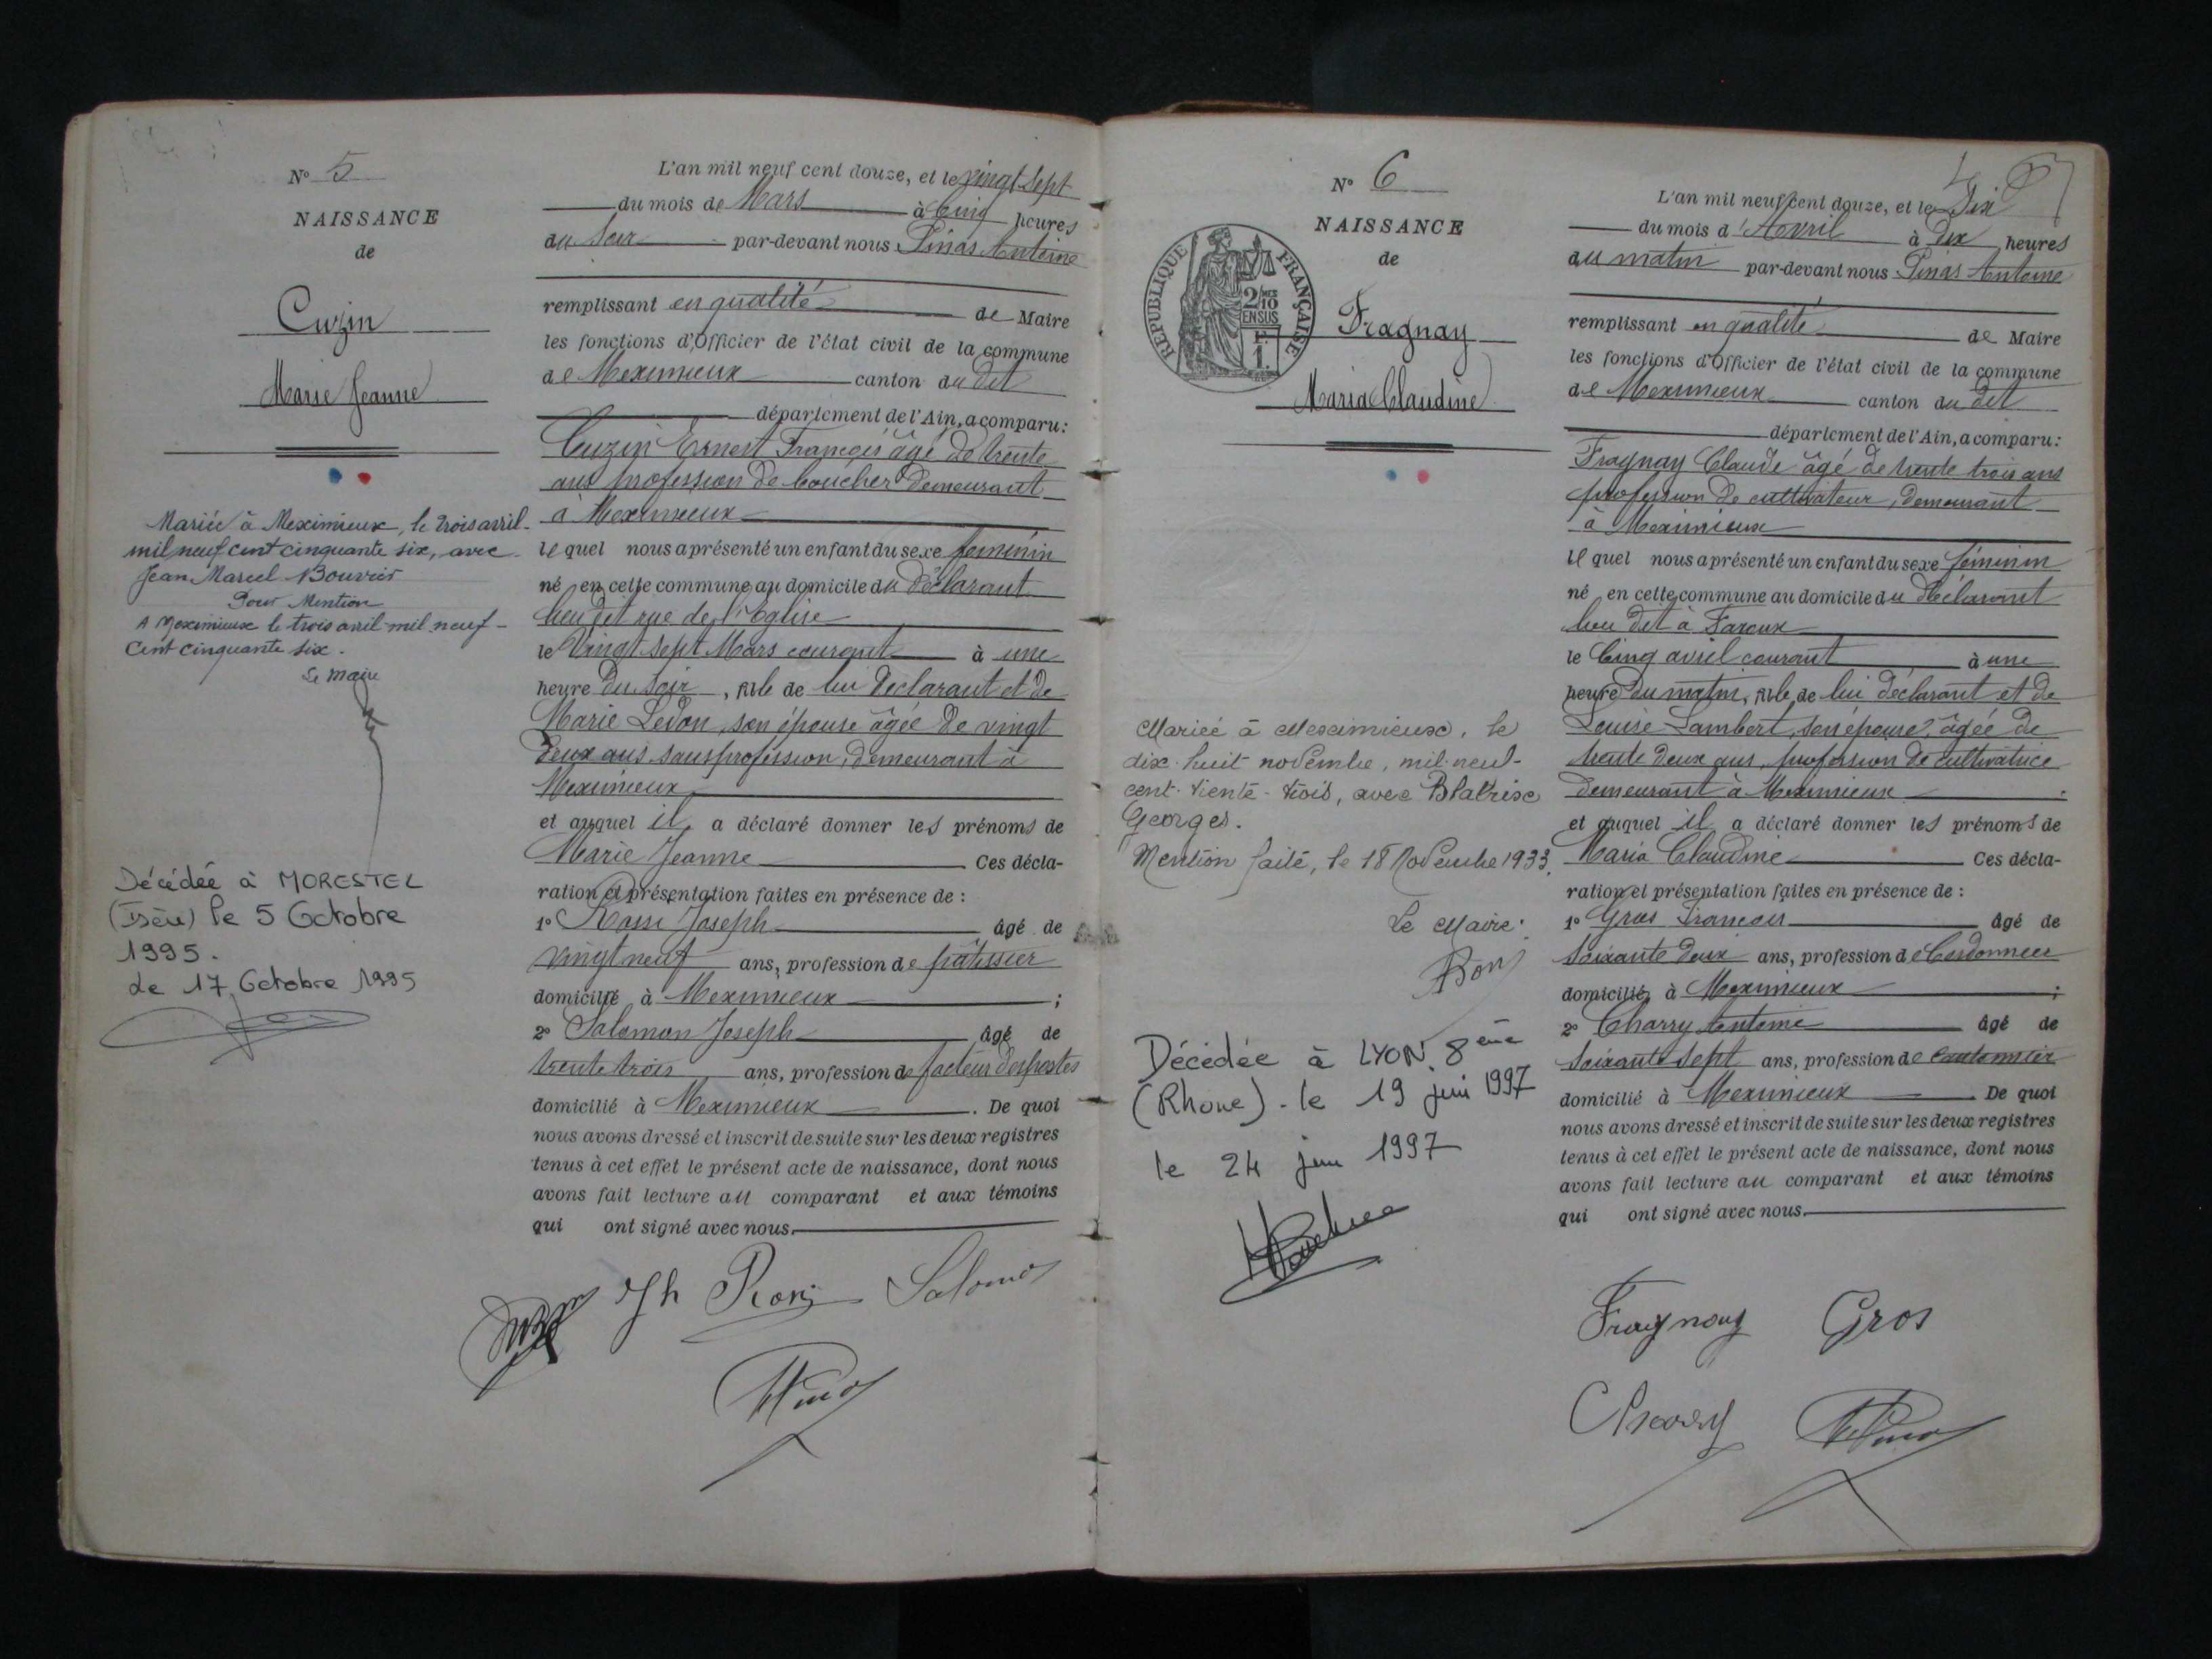 N° 5
NAISSANCE
de
Cuzin
Marie Jeanne
Mariée à Meximieux, le trois avril
mil neuf cent cinquante six, avec
Jean Marcel Bouvier
Pour Mention
A Meximieux le trois avril mil neuf
cent cinquante six.
Le maire
Décédée à MORESTEL
(Isère) le 5 Octobre
1995.
Le 17 Octobre 1995
L'an mil neuf cent douze, et le vingt sept
du mois de Mars à Cinq heures
du soir par-devant nous Pinas Antoine
remplissant en qualité de Maire
les fonctions d'Officier de l'état civil de la commune
de Meximieux canton du dit
département de l'Ain, a comparu:
Cuzin Ernest François âgé de trente
ans profession de boucher demeurant
à Meximieux
lequel nous a présenté un enfant du sexe féminin
né en cette commune au domicile du déclarant
lieu dit rue de l'Eglise
le Vingt sept Mars courant à une
heure du soir, fille de lui déclarant et de
Marie Ledon, son épouse âgée de vingt
deux ans sans profession, demeurant à
Meximieux
et auquel il a déclaré donner les prénoms de
Marie Jeanne Ces décla-
ration et présentation faites en présence de :
1° Joseph âgé de
vingt neuf ans, profession de pâtissier
domicilié à Meximieux ;
2° Salomon Joseph âgé de
trente trois ans, profession de facteur des postes
domicilié à Meximieux. De quoi
nous avons dressé et inscrit de suite sur les deux registres
tenus à cet effet le présent acte de naissance, dont nous
avons fait lecture au comparant et aux témoins
qui ont signé avec nous.
Jh Salomon
N° 6
NAISSANCE
de
REPUBLIQUE FRANÇAISE
2/10 EN SUS
F. 1.
Fragnay
Maria Claudine
Mariée à Meximieux, le
dix-huit novembre, mil-neuf-
cent-trente-trois, avec
Georges.
Mention faite, le 18 Novembre 1933.
Le Maire:
Décédée à LYON 8ème
(Rhone) - le 19 juin 1997
le 24 juin 1997
L'an mil neuf cent douze, et le Six
du mois d'Avril à dix heures
du matin par-devant nous Pinas Antoine
remplissant en qualité de Maire
les fonctions d'Officier de l'état civil de la commune
de Meximieux canton du dit
département de l'Ain, a comparu:
Fragnay Claude âgé de trente trois ans
profession de cultivateur, demeurant
à Meximieux
lequel nous a présenté un enfant du sexe féminin
né en cette commune au domicile du déclarant
lieu dit à
le Cinq avril courant à une
heure du matin, fille de lui déclarant et de
Louise Lambert, son épouse, âgée de
trente deux ans, profession de cultivatrice
demeurant à Meximieux
et auquel il a déclaré donner les prénoms de
Maria Claudine Ces décla-
ration et présentation faites en présence de :
1° Gros François âgé de
soixante deux ans, profession de Cordonnier
domicilié à Meximieux ;
2° Charry Antoine âgé de
soixante sept ans, profession de cantonnier
domicilié à Meximieux De quoi
nous avons dressé et inscrit de suite sur les deux registres
tenus à cet effet le présent acte de naissance, dont nous
avons fait lecture au comparant et aux témoins
qui ont signé avec nous.
Fragnay Gros
Charry